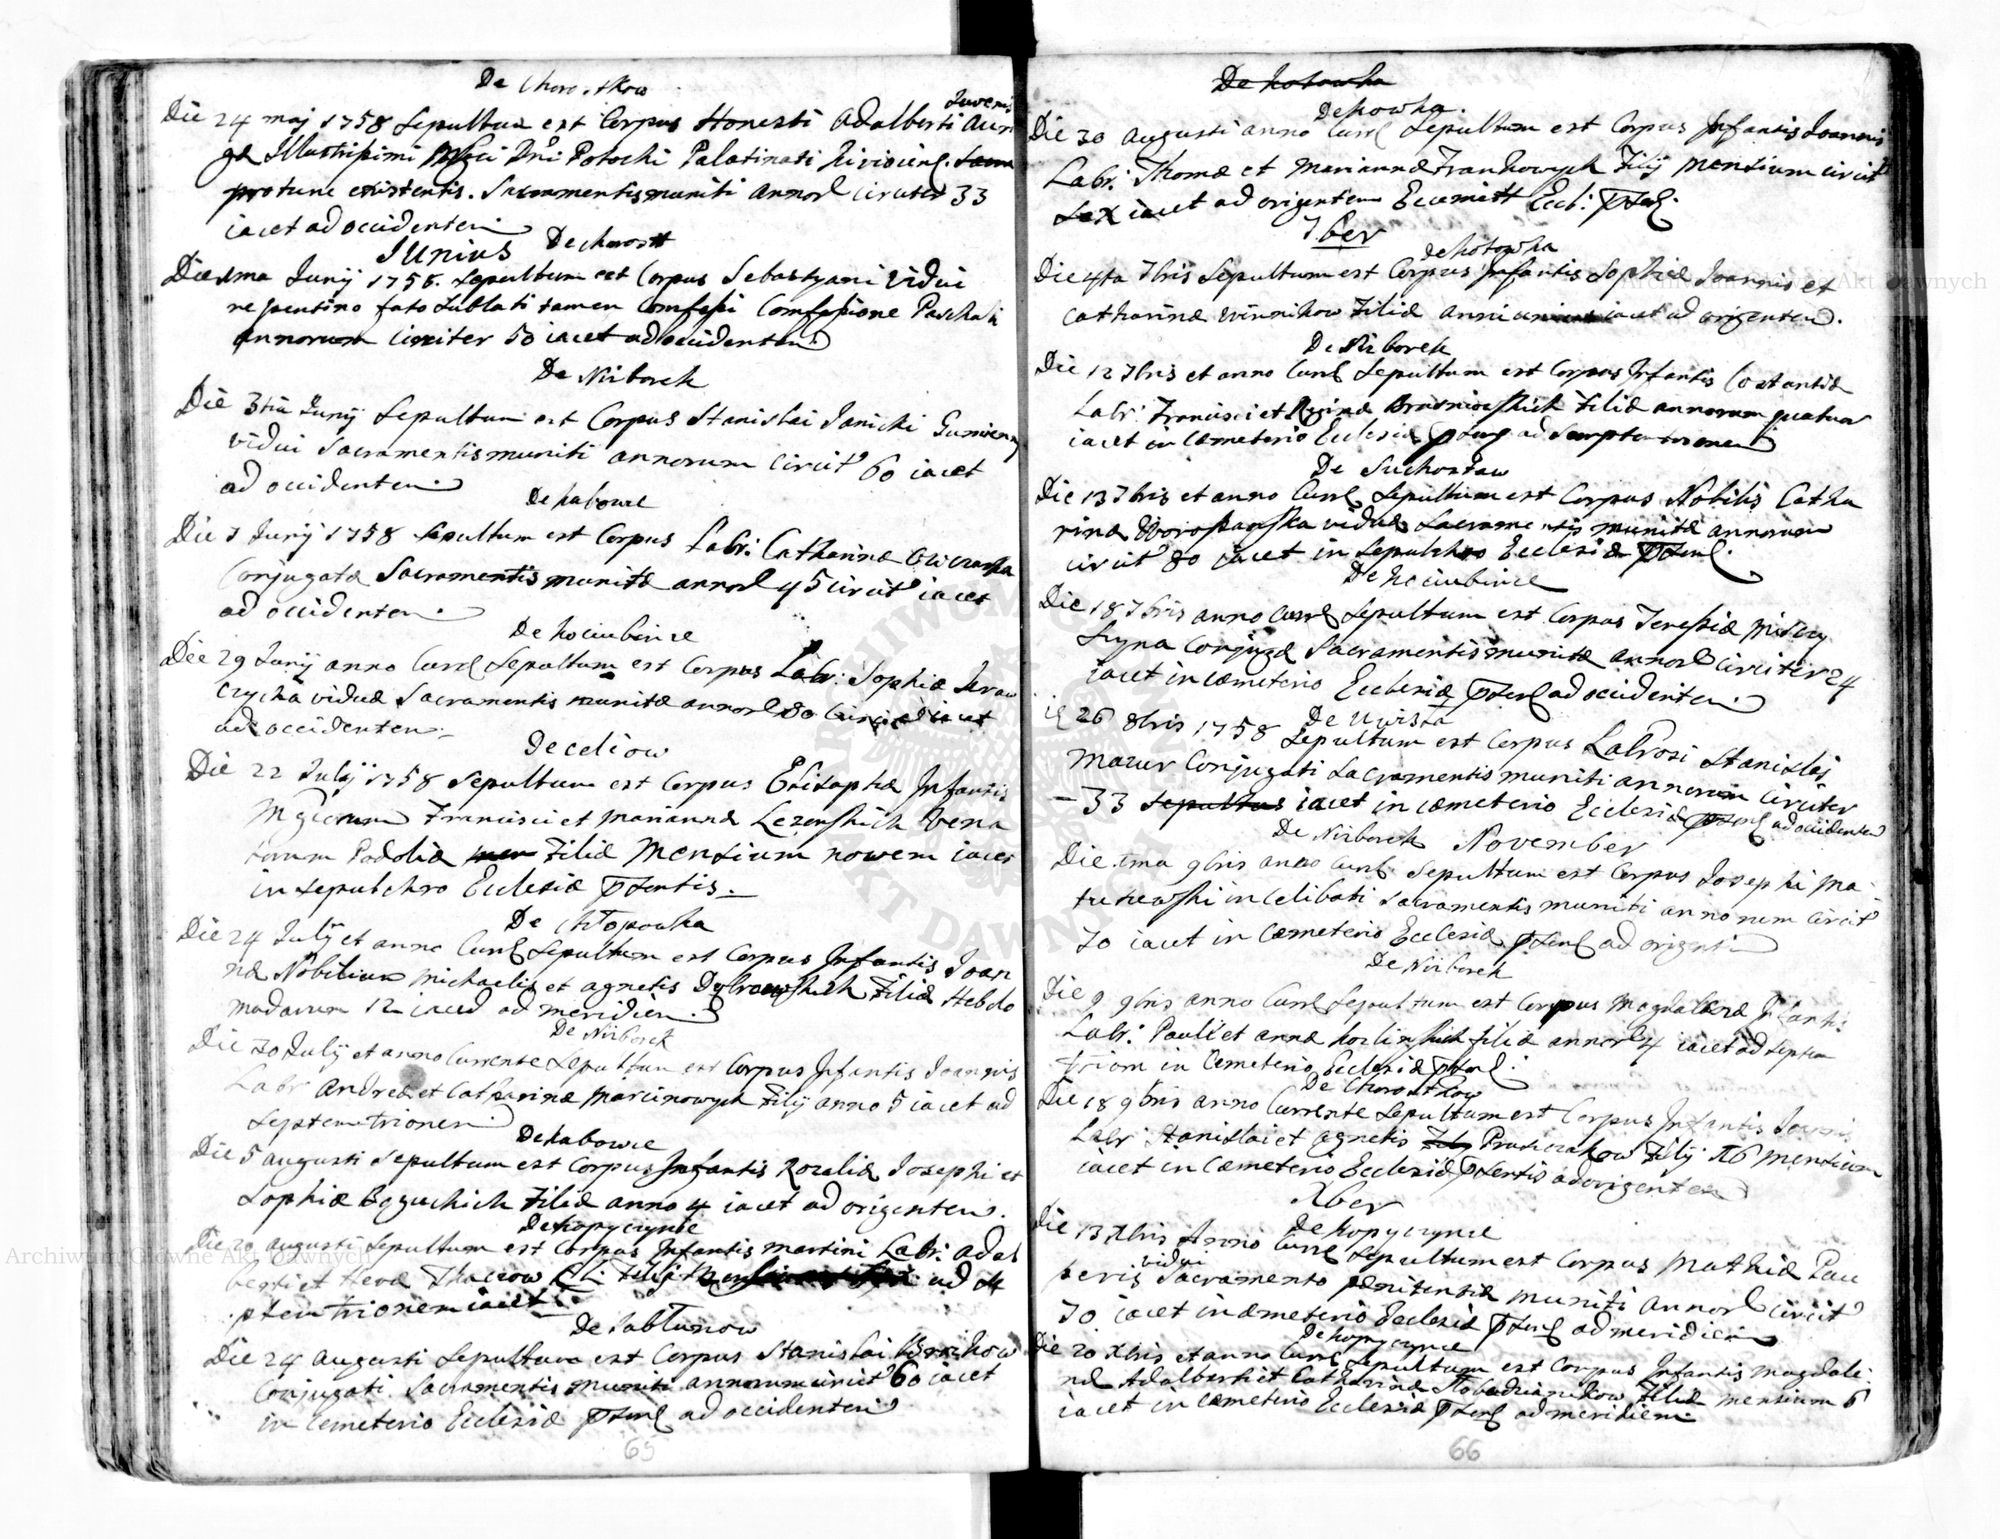 De Chorostkow
Die 24 maj 1758 Sepultum est Corpus Honesti Adalberti Juvenis
Illustrissimi Dni Potocki Palatinati
protunc existentis. Sacramentis muniti annor circiter 33
iacet ad occidentem
Junius De Chorostk
Die 1ma Junij 1758. Sepultum est Corpus Sebastyani vidui
repentino fato sublati tamen Confessi Confessione Paschali
annorum circiter 50 iacet ad occidentem
De Nirborek
Die 3tia Junij Sepultum est Corpus Stanislai Janicki
vidui Sacramentis muniti annorum circit 60 iacet
ad occidentem
De Kabowce
Die 7 Junij 1758 Sepultum est Corpus Labr: Catharinæ
Conjugatæ Sacramentis munitæ annor 45 circit iacet
ad occidentem
De Kociubince
Die 29 Junij anno Curr Sepultum est Corpus Labr: Sophiæ
viduæ Sacramentis munitæ annor 80 iacet
ad occidentem
De Celiow
Die 22 Julij 1758 Sepultum est Corpus Infantis
Francisci et Mariannæ Lezenskich Vena
torum Podoliæ Filiæ Mensium nowem iacet
in Sepulchro Ecclesiæ ptentis
De Chłopowka
Die 24 Julij et anno Curr Sepultum est Corpus Infantis Joan
næ Nobilium Michaelis et Agnetis Dobrowskich Filiæ Hebdo
madarum 12 iaced ad meridiem
De Nirborek
Die 30 Julij et anno Currente Sepultum est Corpus Infantis Joannis
Labr Andreæ et Catharinæ Marcinowych Filij anno 5 iacet ad
Septemtrionem
De Kabowce
Die 5 Augusti Sepultum est Corpus Infantis Rozaliæ Josephi et
Sophiæ Boguckich Filiæ anno 4 iacet ad origentem.
De Kopyczynce
Die 20 Augusti Sepultum est Corpus Infantis Martini Labr: Adal
berti et Hevæ Tkaczow Filij ad Se
ptemtrionem iacet
De Jabłonow
Die 24 Augusti Sepultum est Corpus Stanislai
Conjugati Sacramentis muniti annorum circit 60 iacet
in Cemeterio Ecclesiæ ptens ad occidentem
65
De Kotowka
De Howka.
Die 30 Augusti anno Curr Sepultum est Corpus Infantis Joannis
Labr: Thomæ et Mariannæ Frankowych Filij mensium circit
Sex iacet ad origentem Eccl: ptens.
7ber
De Kotowka
Die 4ta 7bris Sepultum est Corpus Infantis Sophiæ Joannis et
Catharinæ Winnikow Filiæ anni iacet ad origentem.
De Nirborek
Die 12 7bris et anno Curr Sepultum est Corpus Infantis Costantiæ
Labr: Francisci et Reginæ Filiæ annorum quatuor
iacet in Cæmeterio Ecclesiæ ptens ad Semptemtrionem
De Suchostaw
Die 13 7bris et anno Curr Sepultum est Corpus Nobilis Catha
rinæ viduæ Sacramentis munitæ annorum
circit 80 iacet in Sepulchro Ecclesiæ ptens.
De Kociubince
Die 18 7bris anno Curr Sepultum est Corpus Teressiæ
Conjugæ Sacramentis munitæ annor circiter 24
iacet in Cæmeterio Ecclesiæ ptens ad occidentem.
De Uwista
26 8bris 1758 Sepultum est Corpus Labrosi Stanislaj
Mazur Conjugati Sacramentis muniti annorum circiter
- 33 Sepultus iacet in Cæmeterio Ecclesiæ ptens ad occidentem
De Nirborek November
Die 1ma 9bris anno Curr Sepultum est Corpus Josephi Ma
in Celibati Sacramentis muniti annorum circit
70 iacet in Cæmeterio Ecclesiæ ptens ad origente
De Nirborek
Die 9 9bris anno Curr Sepultum est Corpus Magdalenæ Infantis
Labr: Pauli et Annæ Filiæ annor 4 iacet ad Septem
triom in Cemeterio Ecclesiæ ptens.
De Chorostkow
Die 18 9bris anno Currente Sepultum est Corpus Infantis Joannis
Labr Stanislai et Agnetis Filij 6 mensium
iacet in Cæmeterio Ecclesiæ ptentis ad origentem
Xber
De Kopyczynce
Die 13 Xbris Anno Curr Sepultum est Corpus Mathiæ Pau
peris vidui Sacramento pænitentiæ muniti annor circit
70 iacet in Cæmeterio Ecclesiæ ptens ad meridiem
De Kopyczynce
Die 20 Xbris et anno Curr Sepultum est Corpus Infantis Magdale
næ Adalberti et Catharinæ Filiæ mensium 6
iacet in Cæmeterio Ecclesiæ ptens ad meridiem
66
Archiwum Główne Akt Dawnych